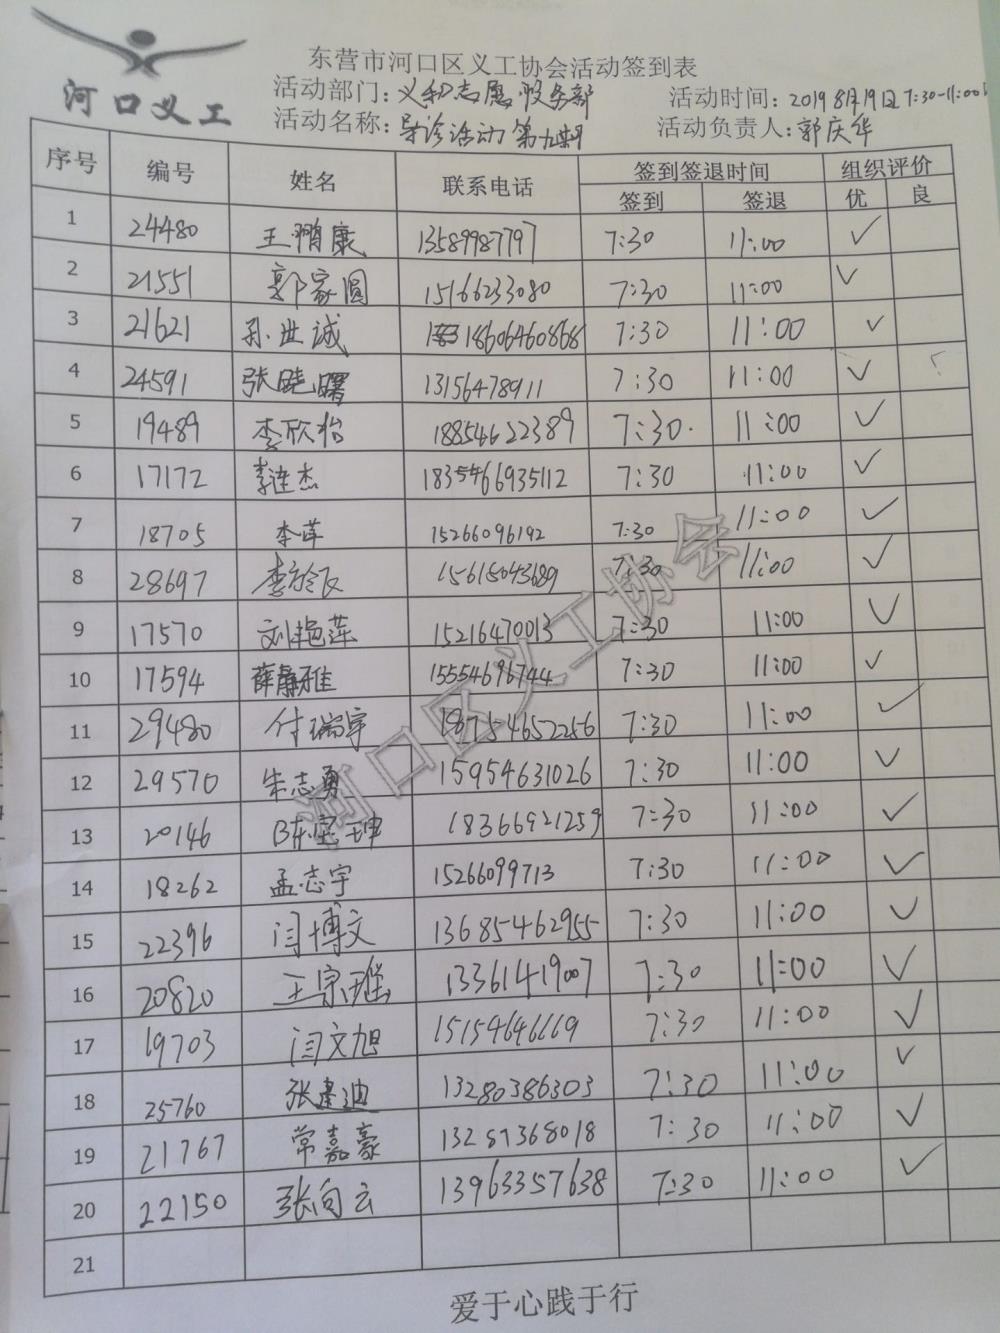 河口义工
东营市河口区义工协会活动签到表
活动部门: 义和志愿服务部 活动时间: 2019 8月19日7:30-11:00
活动名称: 导诊活动 第九期 活动负责人: 郭庆华
序号 编号 姓名 联系电话 签到签退时间 组织评价
签到 签退 优 良
1 24480 王鹏康 13589987797 7:30 11:00 ✓
2 21551 郭家圆 15166233080 7:30 11:00 ✓
3 21621 孙世诚 18606460868 7:30 11:00 ✓
4 24591 张晓曙 13156478911 7:30 11:00 ✓
5 19489 李欣怡 18854622389 7:30. 11:00 ✓
6 17172 李连杰 1835466935112 7:30 11:00 ✓
7 18705 李萍 15266096192 7:30 11:00 ✓
8 28697 李 15615043689 7:30 11:00 ✓
9 17570 刘艳萍 15216470013 7:30 11:00 ✓
10 17594 薛静雅 15554696744 7:30 11:00 ✓
11 29480 付瑞宇 18754652256 7:30 11:00 ✓
12 29570 朱志勇 15954631026 7:30 11:00 ✓
13 20146 陈宝坤 18366921259 7:30 11:00 ✓
14 18262 孟志宇 15266099713 7:30 11:00 ✓
15 22396 闫博文 13685462955 7:30 11:00 ✓
16 20820 王宗瑶 13361419007 7:30 11:00 ✓
17 19703 闫文旭 15154646669 7:30 11:00 ✓
18 25760 张建迪 13280386303 7:30 11:00 ✓
19 21767 常嘉豪 13287368018 7:30 11:00 ✓
20 22150 张向云 13963357638 7:30 11:00 ✓
21
河口区义工协会
爱于心践于行